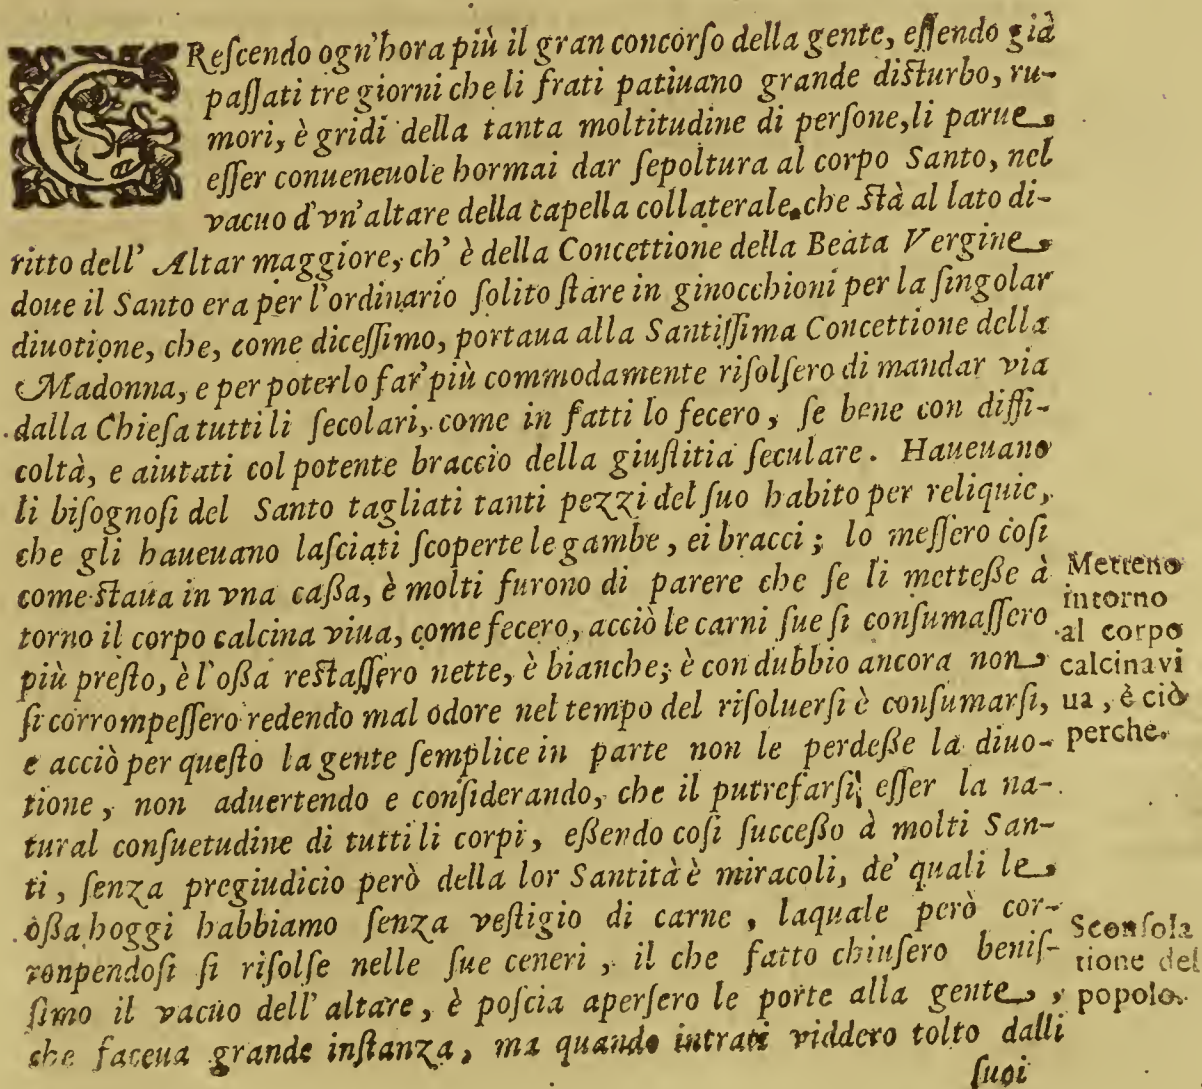 CReſcendo ogn'hora più il gran concorſo della gente, eſſendo già
paſſati tre giorni che li frati patiuano grande diſturbo, ru-
mori, è gridi della tanta moltitudine di perſone, li parue
eſſer conueneuole hormai dar ſepoltura al corpo Santo, nel
vacuo d'vn'altare della capella collaterale, che ſtà al lato di-
ritto dell' Altar maggiore, ch' è della Concettione della Beata Vergine
doue il Santo era per l'ordinario ſolito ſtare in ginocchioni per la ſingolar
diuotione, che, come diceſſimo, portaua alla Santiſſima Concettione della
Madonna, e per poterlo far' più commodamente riſolſero di mandar via
dalla Chieſa tutti li ſecolari, come in fatti lo fecero, ſe bene con diffi-
coltà, e aiutati col potente braccio della giuſtitia ſeculare. Haueuano
li biſognoſi del Santo tagliati tanti pezzi del ſuo habito per reliquie,
che gli haueuano laſciati ſcoperte le gambe, ei bracci; lo meſſero coſi
come ſtaua in vna caßa, è molti furono di parere che ſe li metteße à
torno il corpo calcina viua, come fecero, acciò le carni ſue ſi conſumaſſero
più preſto, è l'oßa reſtaſſero nette, è bianche; è con dubbio ancora non
ſi corrompeſſero redendo mal odore nel tempo del riſoluerſi è conſumarſi,
e acciò per queſto la gente ſemplice in parte non le perdeße la diuo-
tione, non aduertendo e conſiderando, che il putrefarſi, eſſer la na-
tural conſuetudine di tutti li corpi, eßendo coſi ſucceßo à molti San-
ti, ſenza pregiudicio però della lor Santità è miracoli, de' quali le
oßa hoggi habbiamo ſenza veſtigio di carne, laquale però cor-
ronpendoſi ſi riſolſe nelle ſue ceneri, il che fatto chiuſero beniſ-
ſimo il vacuo dell' altare, è poſcia aperſero le porte alla gente,
che faceua grande inſtanza, ma quando intrati viddero tolto dalli
ſuoi
Metteno
intorno
al corpo
calcinavi
ua, è ciò
perche.
Sconſola
tione del
popolo.